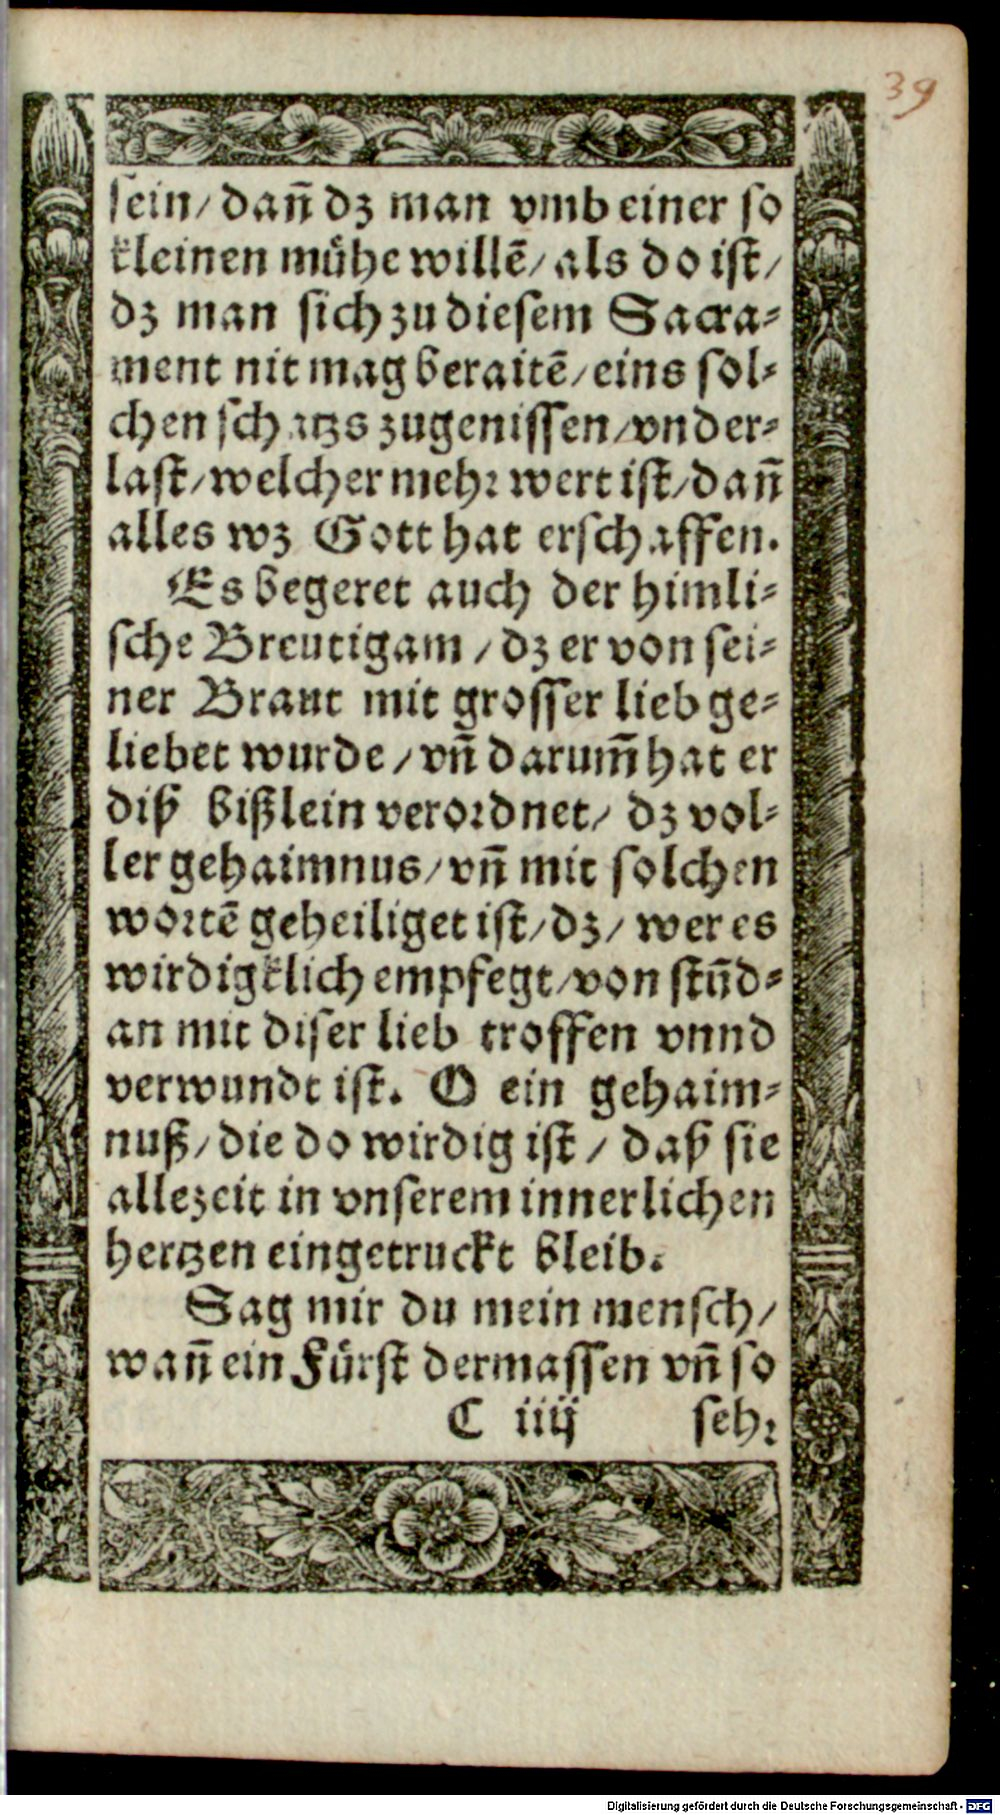 39
sein/ dañ dz man vmb einer so
kleinen mühe willẽ/ als do ist/
dz man sich zu diesem Sacra-
ment nit mag beraitẽ/ eins sol-
chen schatzs zugenissen/ vnder-
last/ welcher mehr wert ist/ dañ
alles wz Gott hat erschaffen.
Es begeret auch der himli-
sche Breutigam/ dz er von sei-
ner Braut mit grosser lieb ge-
liebet wurde/ vñ darum̃ hat er
diß bißlein verordnet/ dz vol-
ler gehaimnus/ vñ mit solchen
wortẽ geheiliget ist/ dz/ wer es
wirdigklich empfegt/ von stũd-
an mit diser lieb troffen vnnd
verwundt ist. O ein gehaim-
nuß/ die do wirdig ist/ daß sie
allezeit in vnserem innerlichen
hertzen eingetruckt bleib.
Sag mir du mein mensch/
wañ ein Fürst dermassen vñ so
C iiij sehr
Digitalisierung gefördert durch die Deutsche Forschungsgemeinschaft - DFG